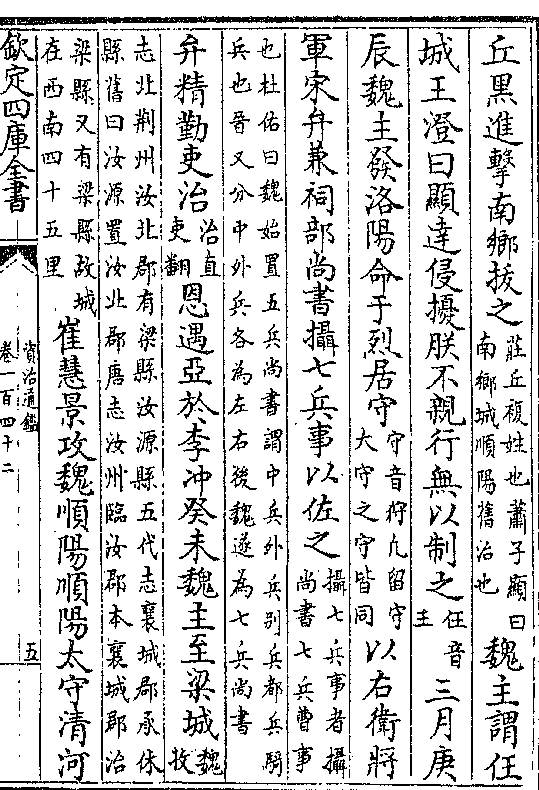 丘黑進擊南鄉拔之莊丘複姓也蕭子顯曰南鄉城順陽舊治也魏主謂任
城王澄曰顯達侵擾朕不親行無以制之任音壬三月庚
辰魏主發洛陽命于烈居守守音狩凡留守大守之守皆同以右衛將
軍宋弁兼祠部尚書攝七兵事以佐之攝七兵事者攝尚書七兵曹事
也杜佑曰魏始置五兵尚書謂中兵外兵別兵都兵騎
兵也晉又分中外兵各為左右後魏遂為七兵尚書
弁精勤吏治治直吏翻恩遇亞於李沖癸未魏主至梁城魏收
志北荊州汝北郡有梁縣汝源縣五代志襄城郡承休
縣舊曰汝源置汝北郡唐志汝州臨汝郡本襄城郡治
梁縣又有梁縣故城在西南四十五里崔慧景攻魏順陽順陽太守清河
欽定四庫全書
資治通鑑
卷一百四十二
五